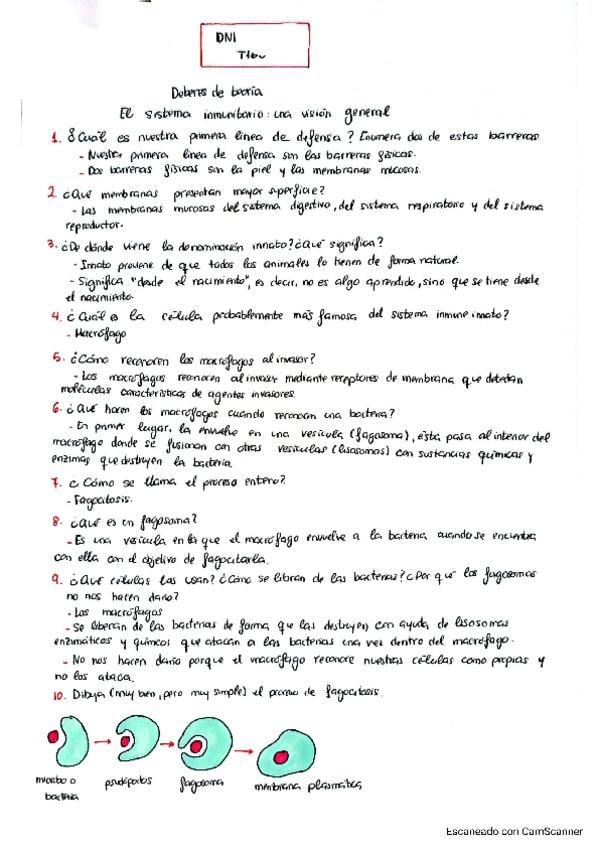 DNI
Deberes de teoría
El sistema inmunitario: una visión general
1. ¿Cuál es nuestra primera línea de defensa? Enumera dos de estas barreras.
- Nuestra primera línea de defensa son las barreras físicas.
- Dos barreras físicas son la piel y las membranas mucosas.
2. ¿Qué membranas presentan mayor superficie?
- Las membranas mucosas del sistema digestivo, del sistema respiratorio y del sistema
reproductor.
3. ¿De dónde viene la denominación innato? ¿Qué significa?
- Innato proviene de que todos los animales lo tienen de forma natural.
- Significa "desde el nacimiento", es decir, no es algo aprendido, sino que se tiene desde
el nacimiento.
4. ¿Cuál es la célula probablemente más famosa del sistema inmune innato?
- Macrófago
5. ¿Cómo reconocen los macrófagos al invasor?
- Los macrófagos reconocen al invasor mediante receptores de membrana que detectan
moléculas características de agentes invasores.
6. ¿Qué hacen los macrófagos cuando reconocen una bacteria?
- En primer lugar, la envuelve en una vesícula (fagosoma), ésta pasa al interior del
macrófago donde se fusionan con otras vesículas (lisosomas) con sustancias químicas y
enzimas que destruyen la bacteria.
7. ¿Cómo se llama el proceso entero?
- Fagocitosis.
8. ¿Qué es un fagosoma?
- Es una vesícula en la que el macrófago envuelve a la bacteria cuando se encuentra
con ella con el objetivo de fagocitarla.
9. ¿Qué células las usan? ¿Cómo se libran de las bacterias? ¿Por qué los fagosomas
no nos hacen daño?
- Los macrófagos
- Se liberan de las bacterias de forma que las destruyen con ayuda de lisosomas
enzimáticos y químicos que atacan a las bacterias una vez dentro del macrófago.
- No nos hacen daño porque el macrófago reconoce nuestras células como propias y
no las ataca.
10. Dibuja (muy bien, pero muy simple) el proceso de fagocitosis.
microbio o
bacteria
pseudópodos
fagosoma
membrana plasmática
Escaneado con CamScanner